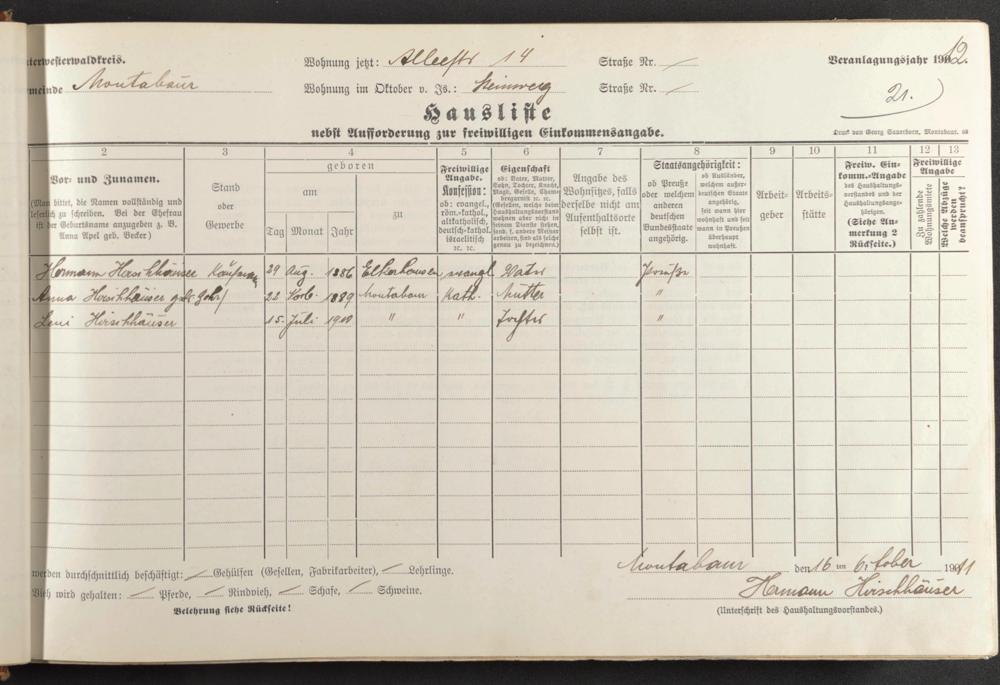 nterwesterwaldkreis.
Wohnung jetzt: Alleestr 14 Straße Nr. /
Veranlagungsjahr 1912.
meinde Montabaur
Wohnung im Oktober v. Js.: Steinweg Straße Nr. /
21.
Hausliste
nebst Aufforderung zur freiwilligen Einkommensangabe.
Druck von Georg Sauerborn, Montabaur.
2 3 4 5 6 7 8 9 10 11 12 13
Vor- und Zunamen.
(Man bittet, die Namen vollständig und
leserlich zu schreiben. Bei der Ehefrau
ist der Geburtsname anzugeben z. B.
Anna Apel geb. Becker.)
Stand
oder
Gewerbe
geboren
am
Tag Monat Jahr
zu
Freiwillige
Angabe.
Konfession:
ob: evangel.,
röm.-kathol.,
altkatholisch,
deutsch-kathol.
israelitisch
ec. ec.
Eigenschaft
ob: Vater, Mutter,
Sohn, Tochter, Knecht,
Magd, Geselle, Chambregarnist ec. ec.
(Gesellen, welche beim
Haushaltungsvorstand
wohnen aber nicht in
seinem Dienste stehen,
sond. f. andere Meister
arbeiten, sind als solche
genau zu bezeichnen).
Angabe des
Wohnsitzes, falls
derselbe nicht am
Aufenthaltsorte
selbst ist.
Staatsangehörigkeit:
ob Preuße
oder welchem
anderen
deutschen
Bundesstaate
angehörig.
ob Ausländer,
welchem außerdeutschen Staate
angehörig,
seit wann hier
wohnhaft und seit
wann in Preußen
überhaupt
wohnhaft.
Arbeitgeber
Arbeitsstätte
Freiw. Einkomm.-Angabe
des Haushaltungsvorstandes und der
Haushaltungsangehörigen.
(Siehe Anmerkung 2
Rückseite.)
Freiwillige
Angabe
Zu zahlende
Wohnungsmiete
Welche Abzüge
werden
beansprucht?
Hermann Hirschhäuser Kaufmann 29 Aug. 1886 Elkerhausen evangl. Vater Preuße
Anna Hirschhäuser geb. 22 1889 Montabaur Kath. Mutter "
Leni Hirschhäuser 15. Juli " " Tochter "
werden durchschnittlich beschäftigt: / Gehülfen (Gesellen, Fabrikarbeiter), / Lehrlinge.
Vieh wird gehalten: / Pferde, / Rindvieh, / Schafe, / Schweine.
Belehrung siehe Rückseite!
Montabaur den 16 ten Oktober 1911
Hermann Hirschhäuser
(Unterschrift des Haushaltungsvorstandes.)